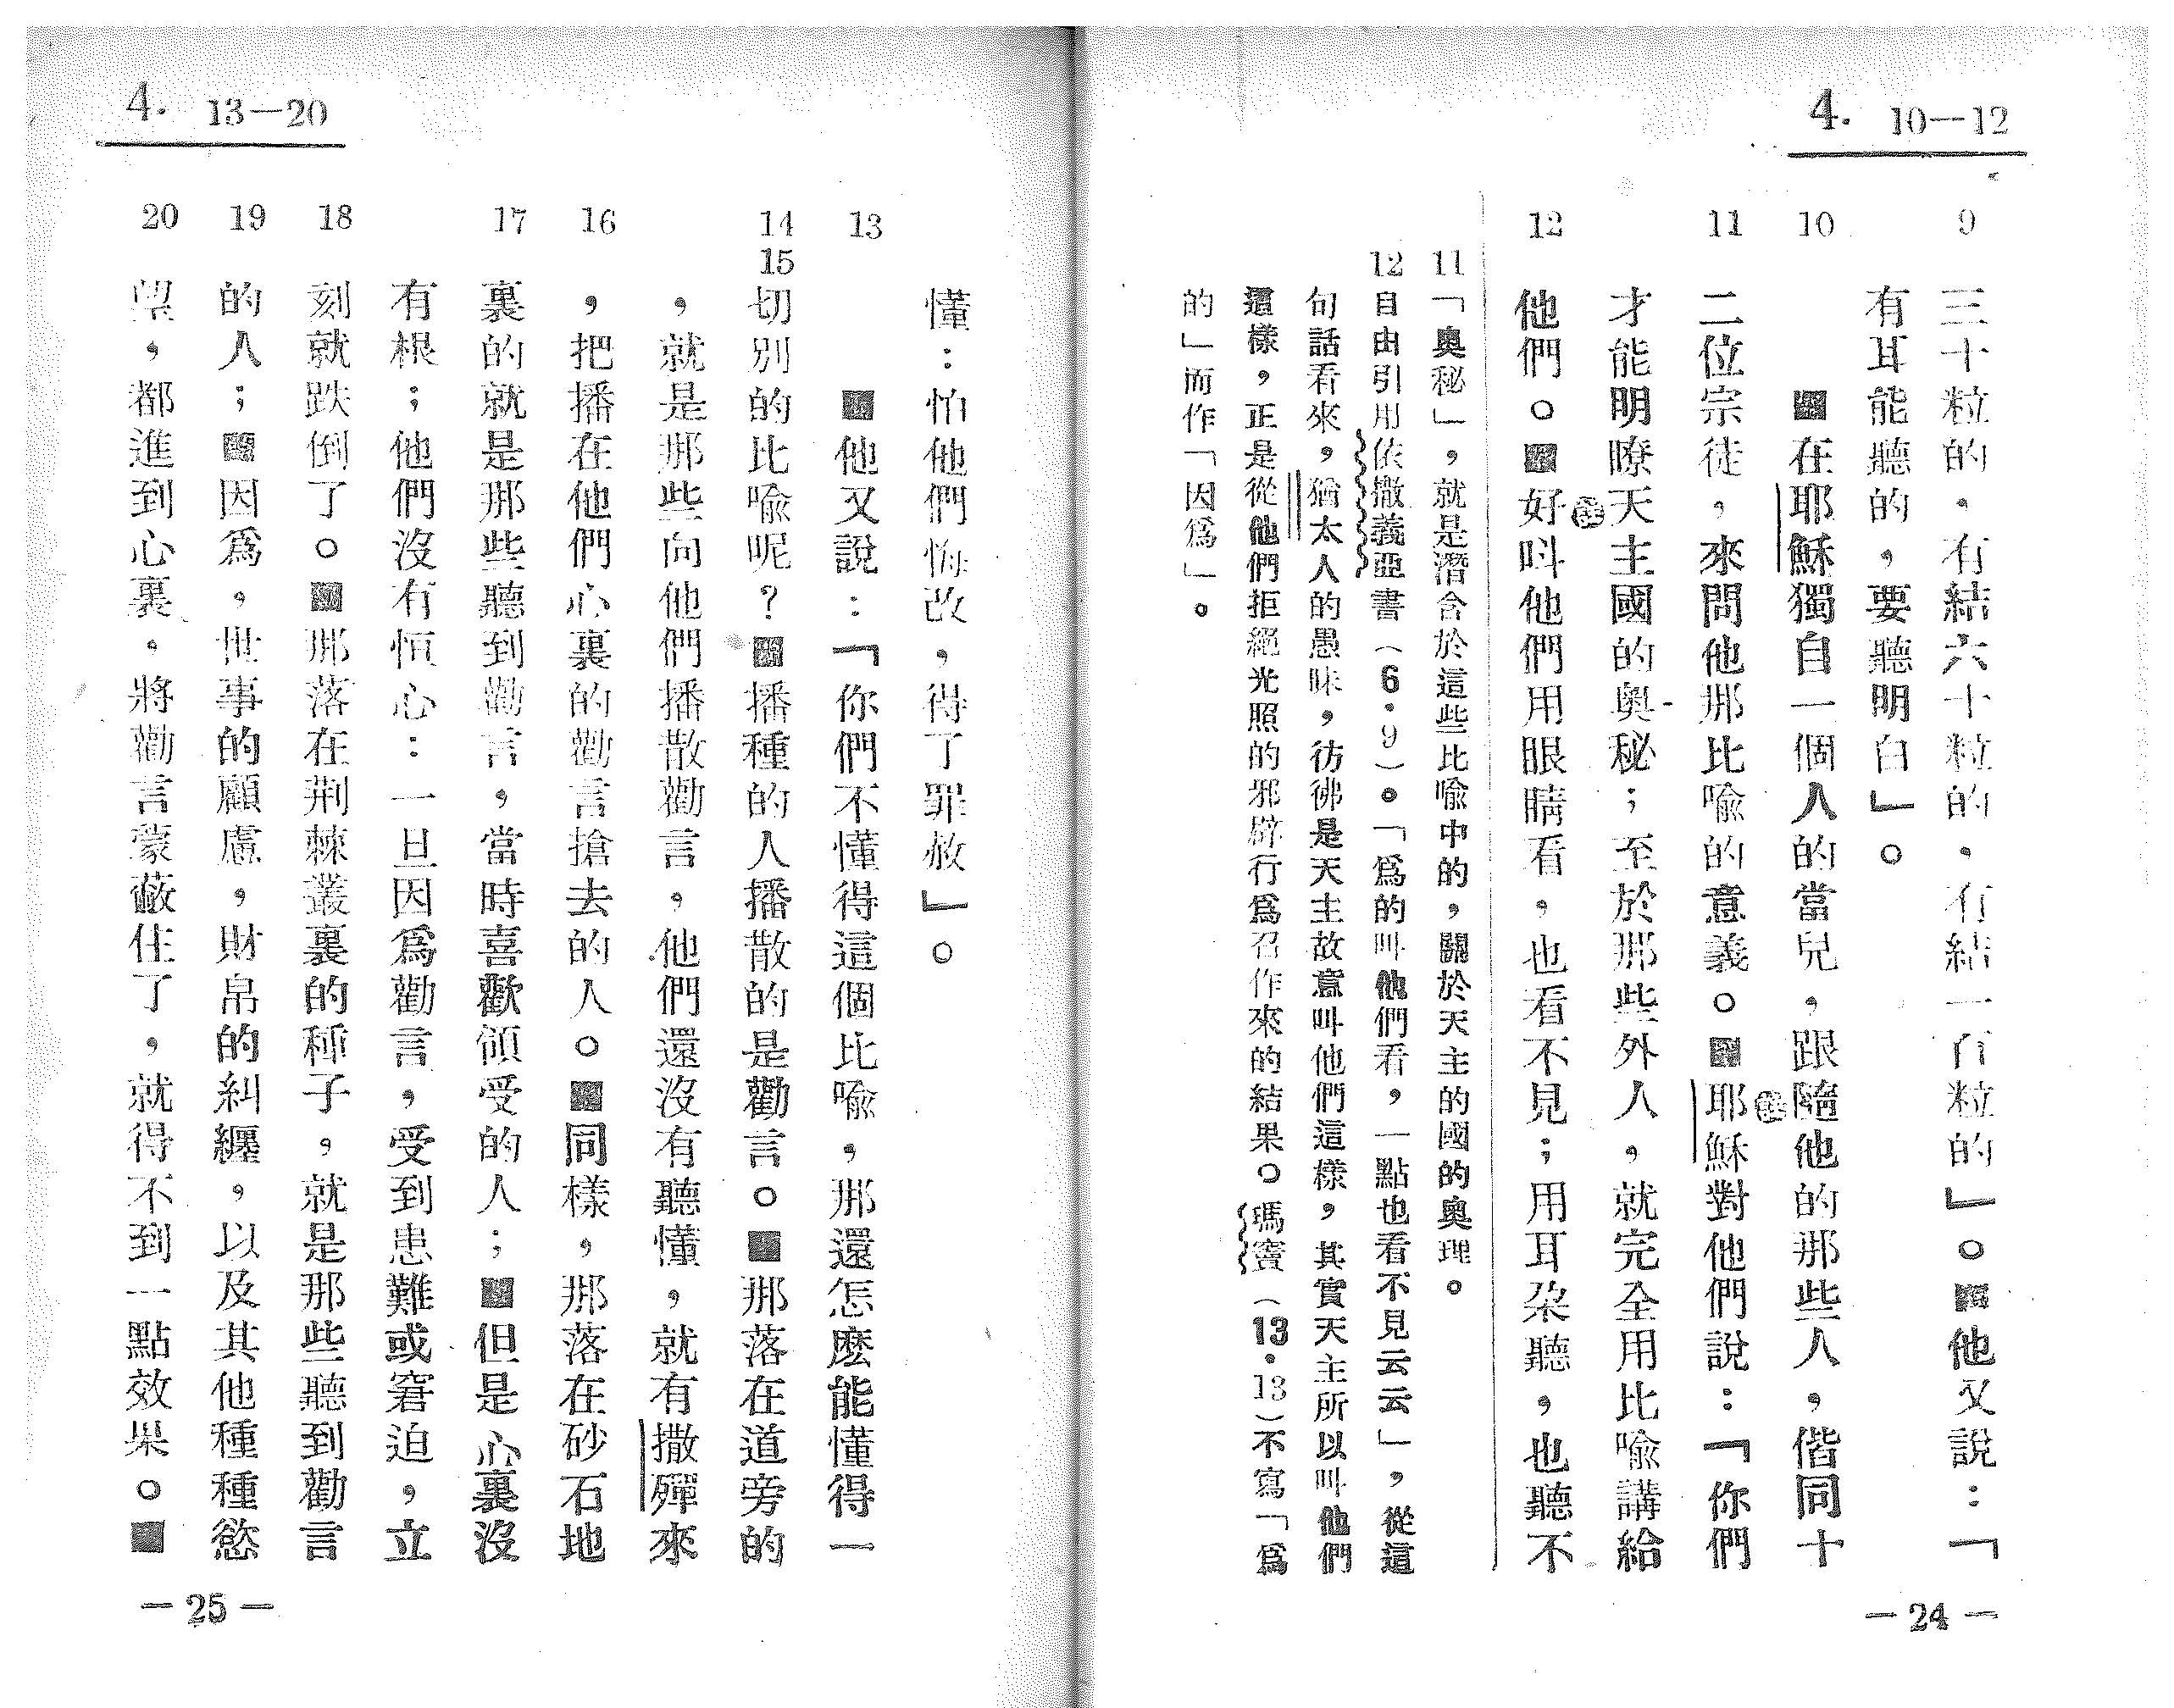 4. 10—12
9
三十粒的，有結六十粒的，有結一百粒的』。■他又說：『
有耳能聽的，要聽明白』。
10
■在耶穌獨自一個人的當兒，跟隨他的那些人，偕同十
11
二位宗徒，來問他那比喻的意義。■耶穌對他們說：『你們
才能明瞭天主國的奧秘；至於那些外人，就完全用比喻講給
12
他們。■好呌他們用眼睛看，也看不見；用耳朵聽，也聽不
11「奧秘」，就是潛含於這些比喻中的，關於天主的國的奧理。
12自由引用依撒義亞書（6·9）。「爲的叫他們看，一點也看不見云云」，從這
句話看來，猶太人的愚昧，彷彿是天主故意叫他們這樣，其實天主所以叫他們
這樣，正是從他們拒絕光照的邪辟行爲召作來的結果。瑪竇（13·13）不寫「爲
的」而作「因爲」。
—24—
4. 13—20
懂：怕他們悔改，得了罪赦』。
13
■他又說：『你們不懂得這個比喻，那還怎麽能懂得一
14 15
切別的比喻呢？■播種的人播散的是勸言。■那落在道旁的
，就是那些向他們播散勸言，他們還沒有聽懂，就有撒殫來
16
，把播在他們心裏的勸言搶去的人。■同樣，那落在砂石地
17
裏的就是那些聽到勸言，當時喜歡領受的人；■但是心裏沒
有根；他們沒有恒心：一旦因爲勸言，受到患難或窘迫，立
18
刻就跌倒了。■那落在荆棘叢裏的種子，就是那些聽到勸言
19
的人；■因爲，世事的顧慮，財帛的糾纏，以及其他種種慾
20
望，都進到心裏，將勸言蒙蔽住了，就得不到一點效果。■
—25—